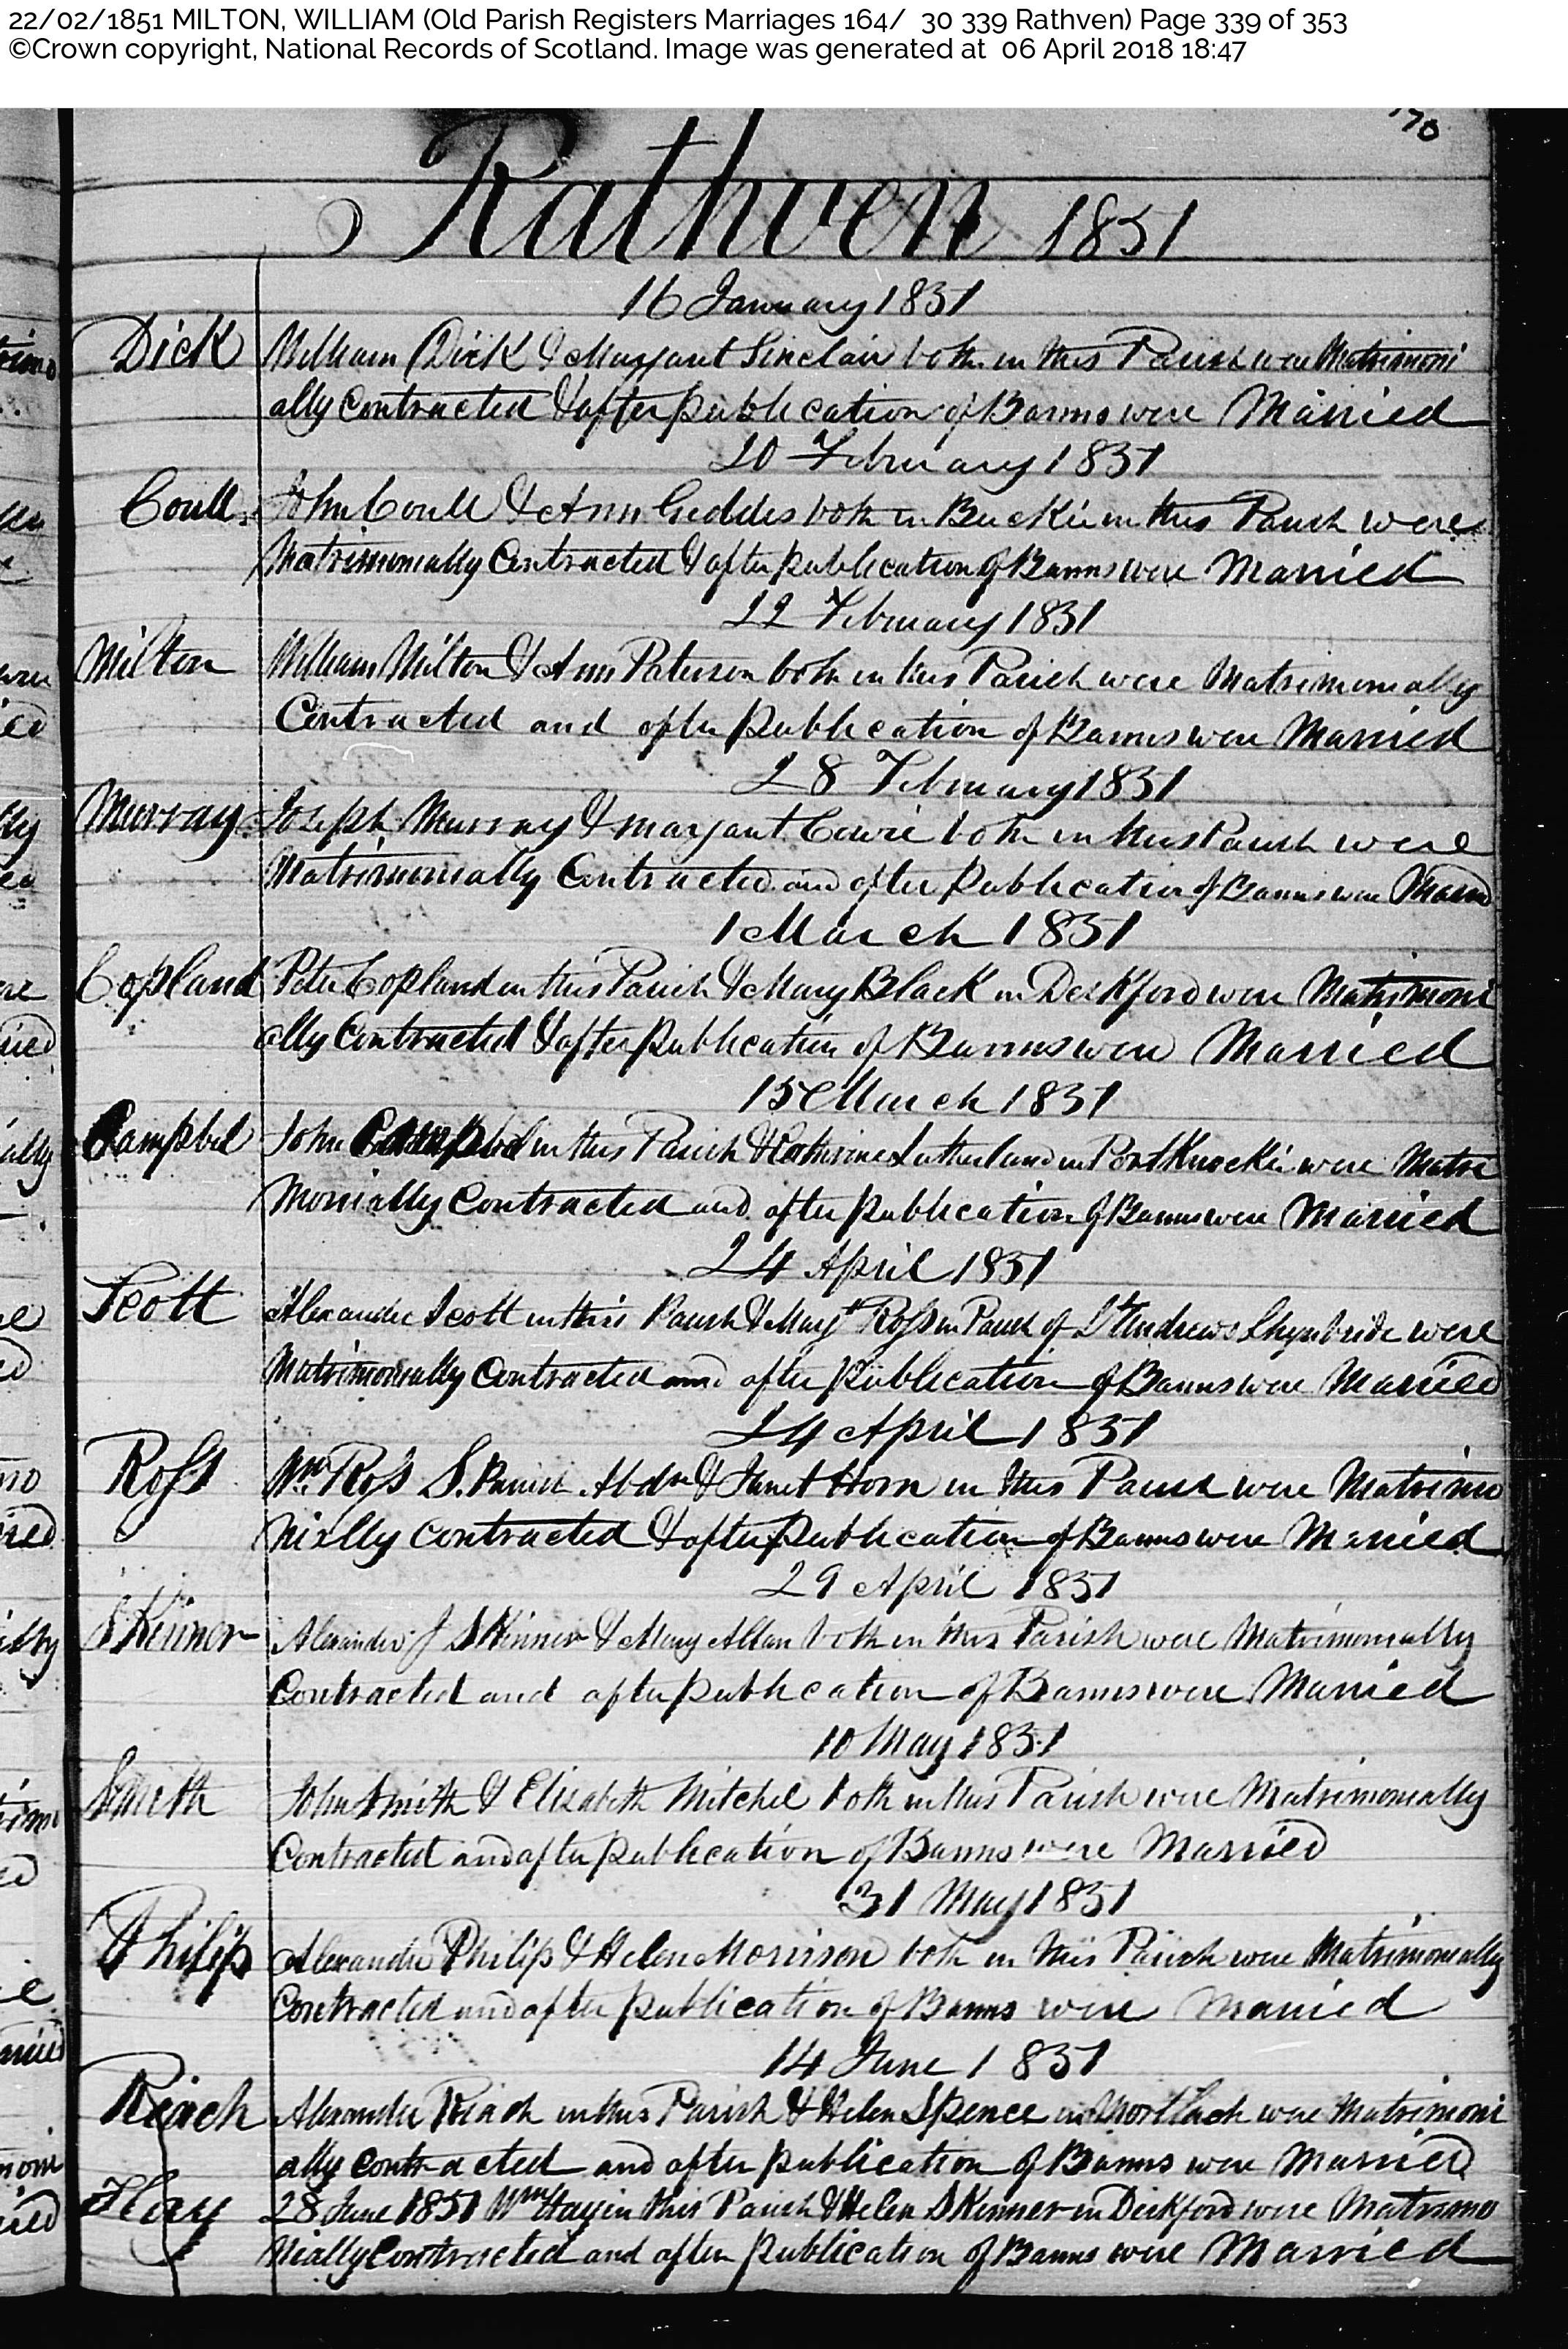 22/02/1851 MILTON, WILLIAM (Old Parish Registers Marriages 164/ 30 339 Rathven) Page 339 of 353
©Crown copyright, National Records of Scotland. Image was generated at 06 April 2018 18:47
170
Rathven 1851
16 January 1851
Dick William Dick & Margaret Sinclair both in this Parish were Matrimoni
ally Contracted & after publication of Banns were Married
20 February 1851
Coull John Coull & Ann Geddes both in Buckie in this Parish were
Matrimonially Contracted & after publication of Banns were Married
22 February 1851
Milton William Milton & Ann Paterson both in this Parish were Matrimonially
Contracted and after publication of Banns were Married
28 February 1851
Murray Joseph Murray & Margaret Cowie both in this Parish were
Matrimonially Contracted and after publication of Banns were Married
1 March 1851
Copland Peter Copland in this Parish & Mary Black in Deskford were Matrimoni
ally Contracted & after publication of Banns were Married
15 March 1851
Campbel John Campbel in this Parish & Catherine Sutherland in Portknockie were Matri
monially Contracted and after publication of Banns were Married
24 April 1851
Scott Alexander Scott in this Parish & Margt Ross in Parish of St Andrews Lhynbride were
Matrimonially Contracted and after publication of Banns were Married
24 April 1851
Ross Wm Ross S. Parish Abdn & Janet Horn in this Parish were Matrimo
nially Contracted & after publication of Banns were Married
29 April 1851
Skinner Alexander J Skinner & Mary Allan both in this Parish were Matrimonially
Contracted and after publication of Banns were Married
10 May 1851
Smith John Smith & Elizabeth Mitchel both in this Parish were Matrimonially
Contracted and after publication of Banns were Married
31 May 1851
Philip Alexander Philip & Helen Morrison both in this Parish were Matrimonially
Contracted and after publication of Banns were Married
14 June 1851
Riach Alexander Riach in this Parish & Helen Spence in Mortlach were Matrimoni
ally Contracted and after publication of Banns were Married
Hay 28 June 1851 Wm Hay in this Parish & Helen Skinner in Deskford were Matrimo
nially Contracted and after publication of Banns were Married